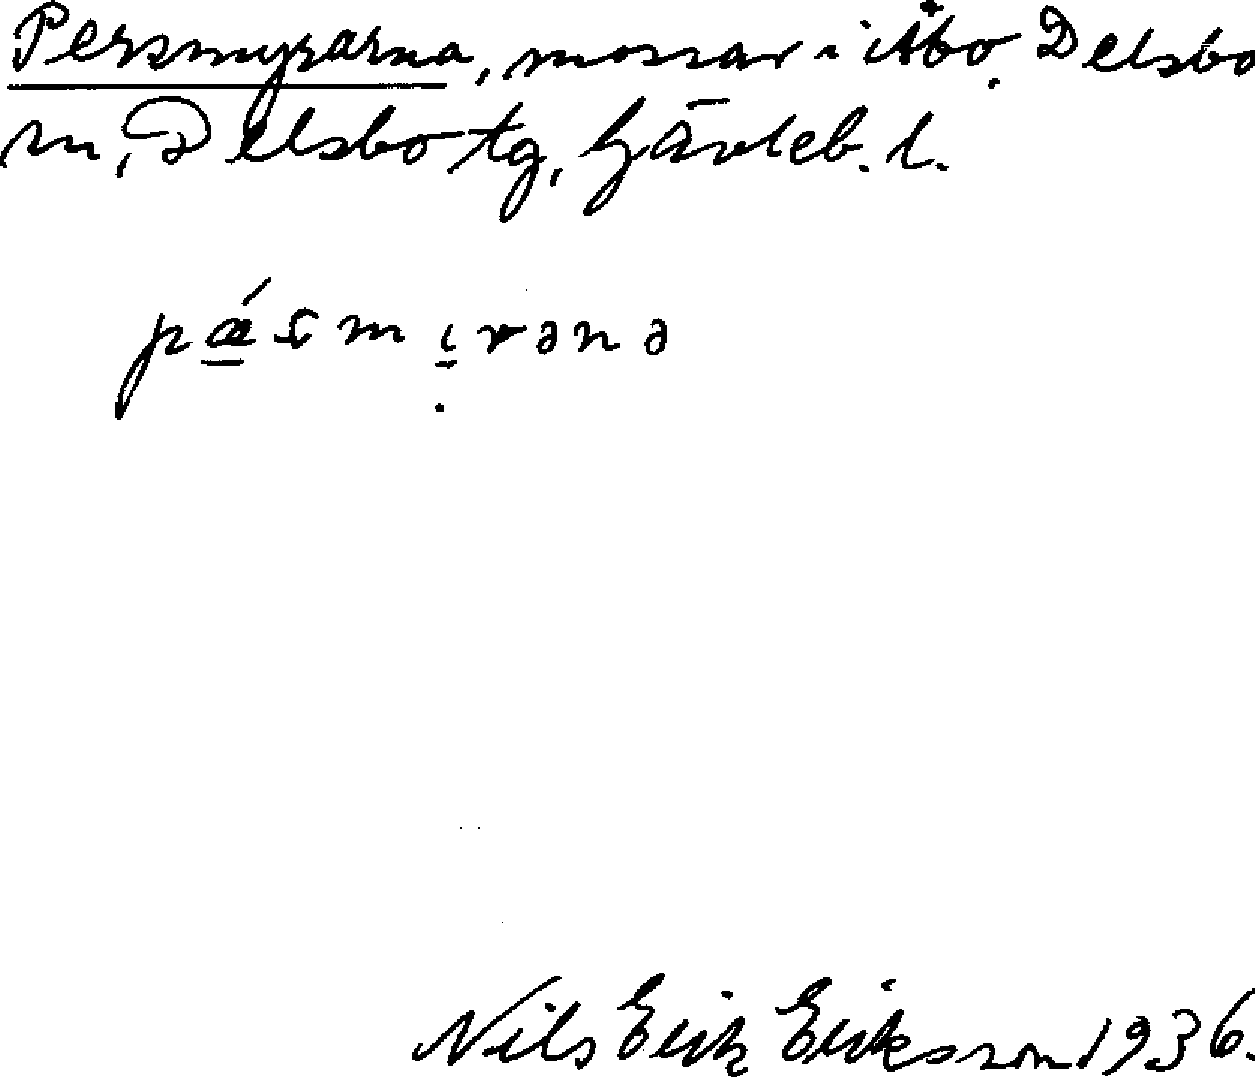 Persmyrarna, mossar i Åbo. Delsbo
sn, Delsbo tg, Gävleb. l.
pǽ̲ʂmi̲rəna
Nils Erik Eriksson 1936.